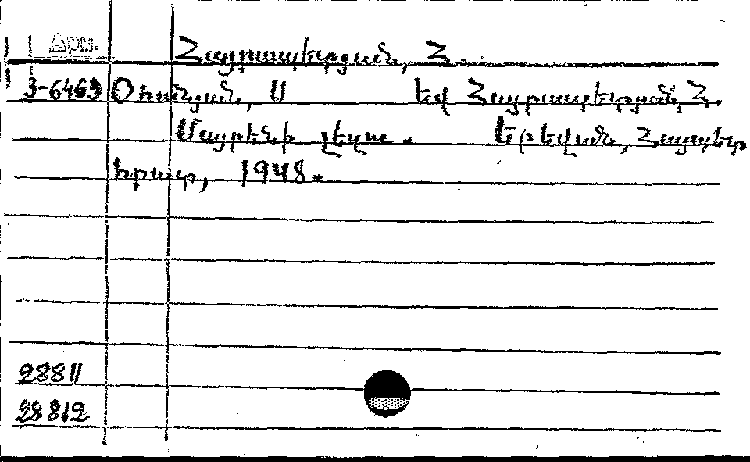 Арм. Հայրապետյան, Հ.
3-6463 Օհանյան, Ս եվ Հայրապետյան, Հ.
Մայրենի լեզու. Երեվան, Հայպետ
հրատ, 1948.
28811
28812